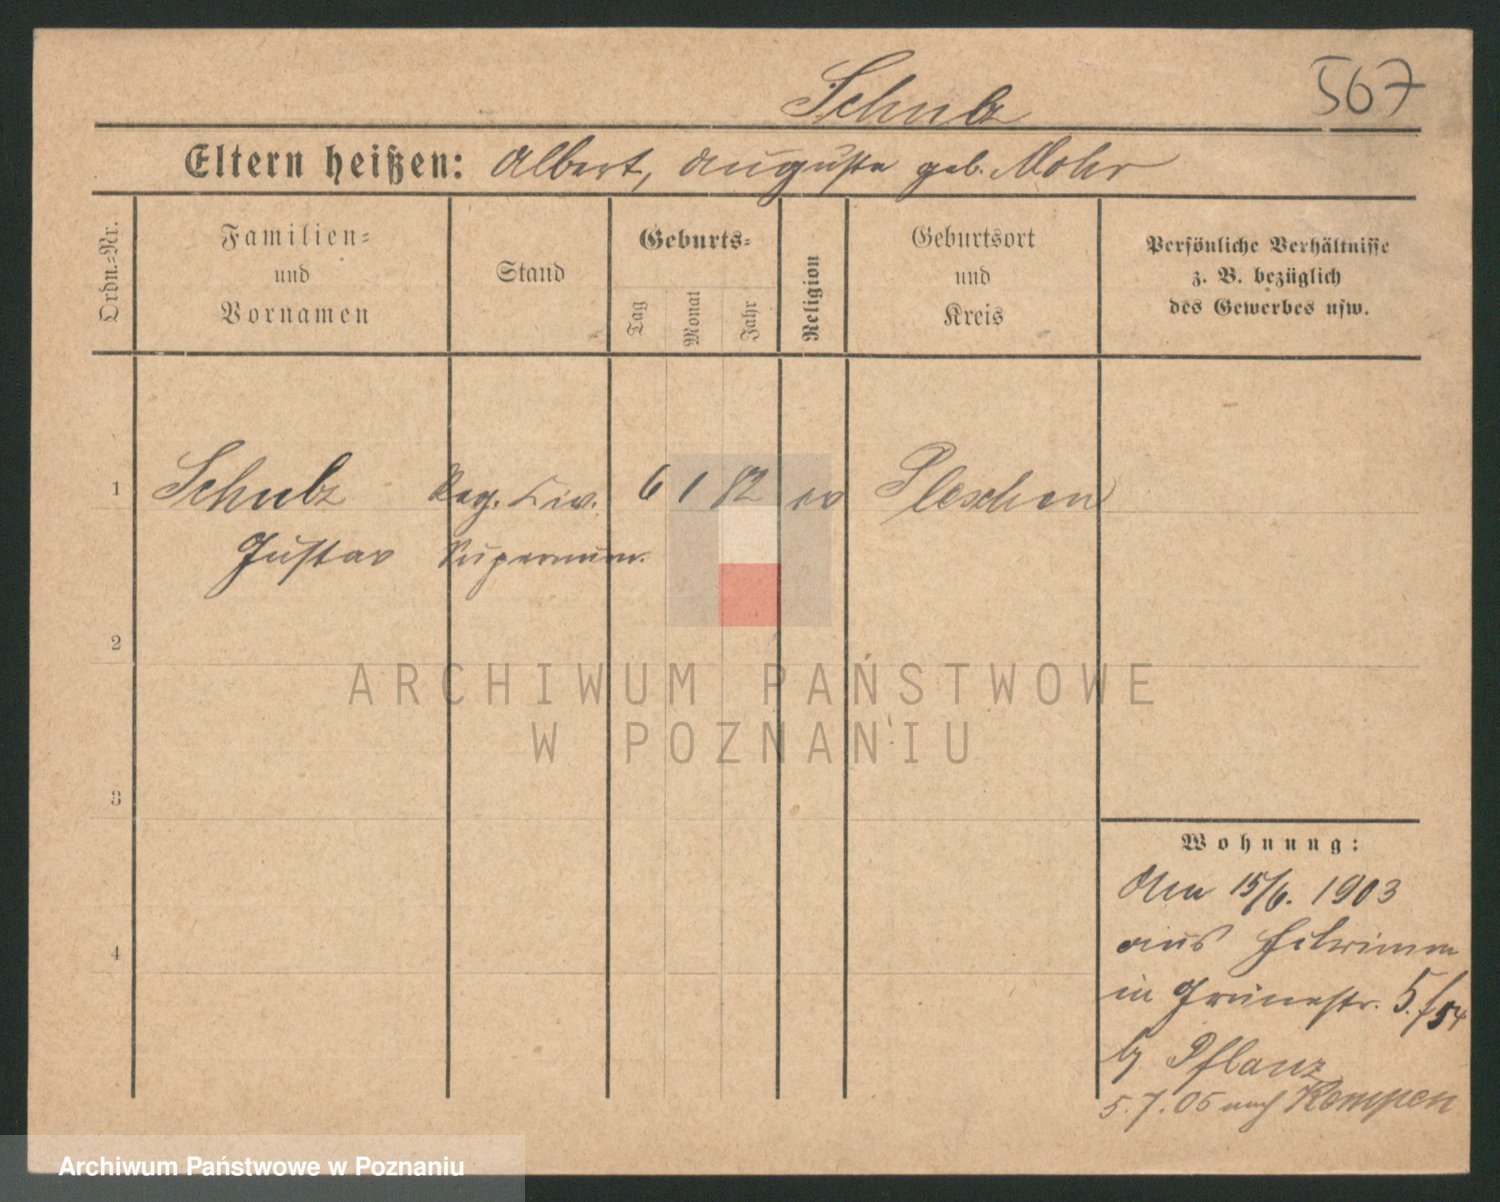 567
Schulz
Eltern heißen: Albert, Auguste geb. Mohr
Ordn.-Nr.
Familien-
und
Vornamen
Stand
Geburts-
Tag
Monat
Jahr
Religion
Geburtsort
und
Kreis
Persönliche Verhältnisse
z. B. bezüglich
des Gewerbes usw.
1 Schulz Reg. Civ. 6 1 82 ev Pleschen
Gustav Supernum.
2
3
4
Wohnung:
Am 15/6. 1903
aus
in Grünestr. 5.
b/ Pflanz
5.7.05 nach Kempen
ARCHIWUM PAŃSTWOWE
W POZNANIU
Archiwum Państwowe w Poznaniu